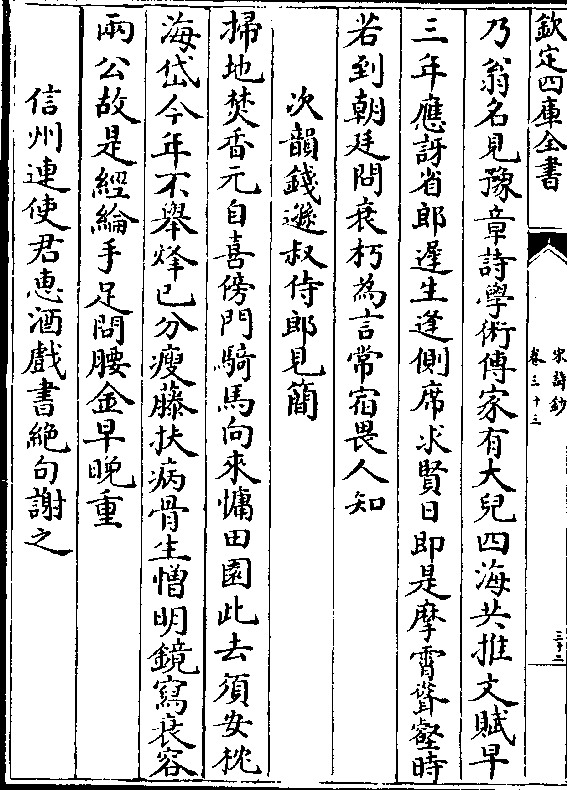 欽定四庫全書
宋詩鈔
卷三十三
三十二
乃翁名見豫章詩學術傳家有大兒四海共推文賦早
三年應訝省郎遲生逢側席求賢日即是摩霄聳壑時
若到朝廷問衰朽為言常宿畏人知
次韻錢遜叔侍郎見簡
掃地焚香元自喜傍門騎馬向來慵田園此去須安枕
海岱今年不舉烽已分瘦藤扶病骨生憎明鏡寫衰容
兩公故是經綸手足問腰金早晚重
信州連使君惠酒戲書絶句謝之